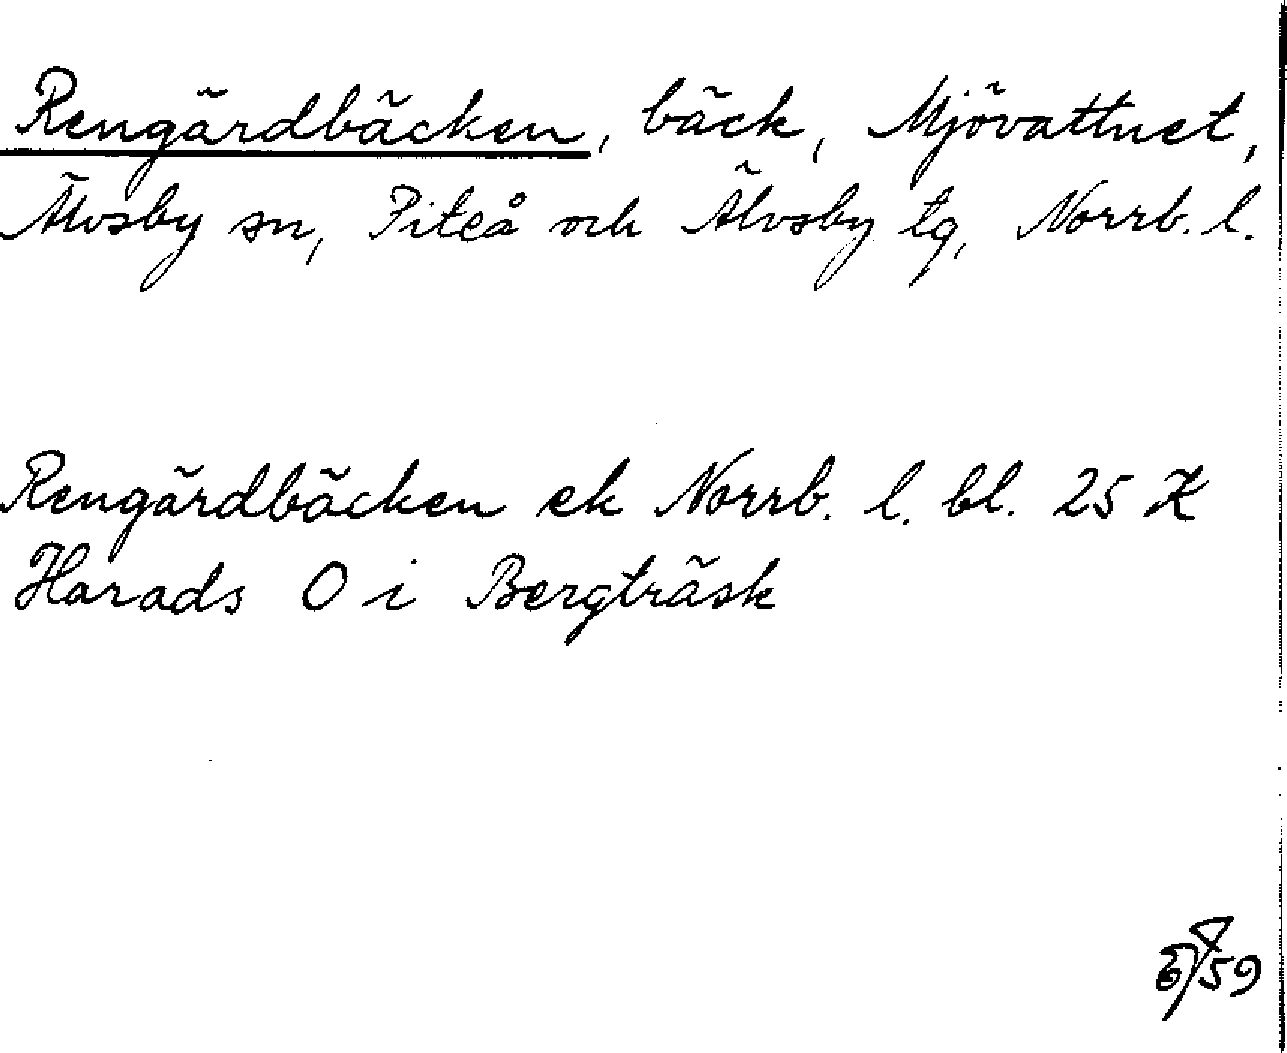 Rengärdbäcken, bäck, Mjövattnet,
Älvsby sn, Piteå och Älvsby tg, Norrb. l.
Rengärdbäcken ek Norrb. l. bl. 25 K
Harads O i Bergträsk